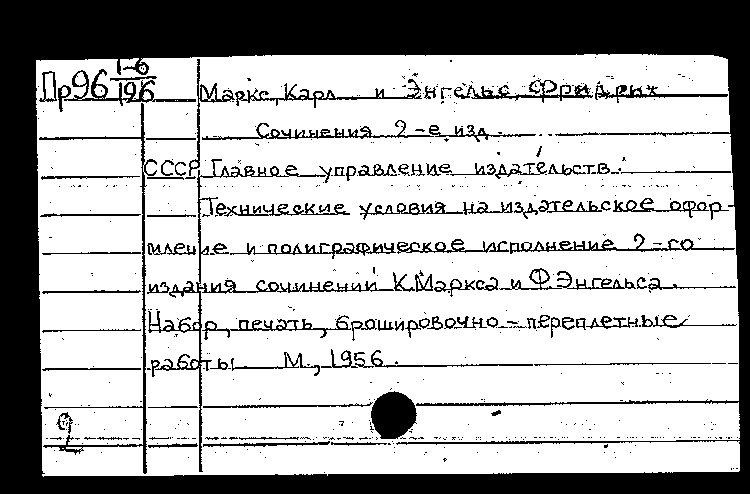 Пр96 1-6/196 Маркс, Карл и Энгельс, Фридрих
Сочинения 2-е изд.
СССР. Главное управление издательств.
Технические условия на издательское офор-
мление и полиграфическое исполнение 2-го
издания сочинений К.Маркса и Ф.Энгельса.
Набор, печать, брошировочно-переплетные
работы. М., 1956.